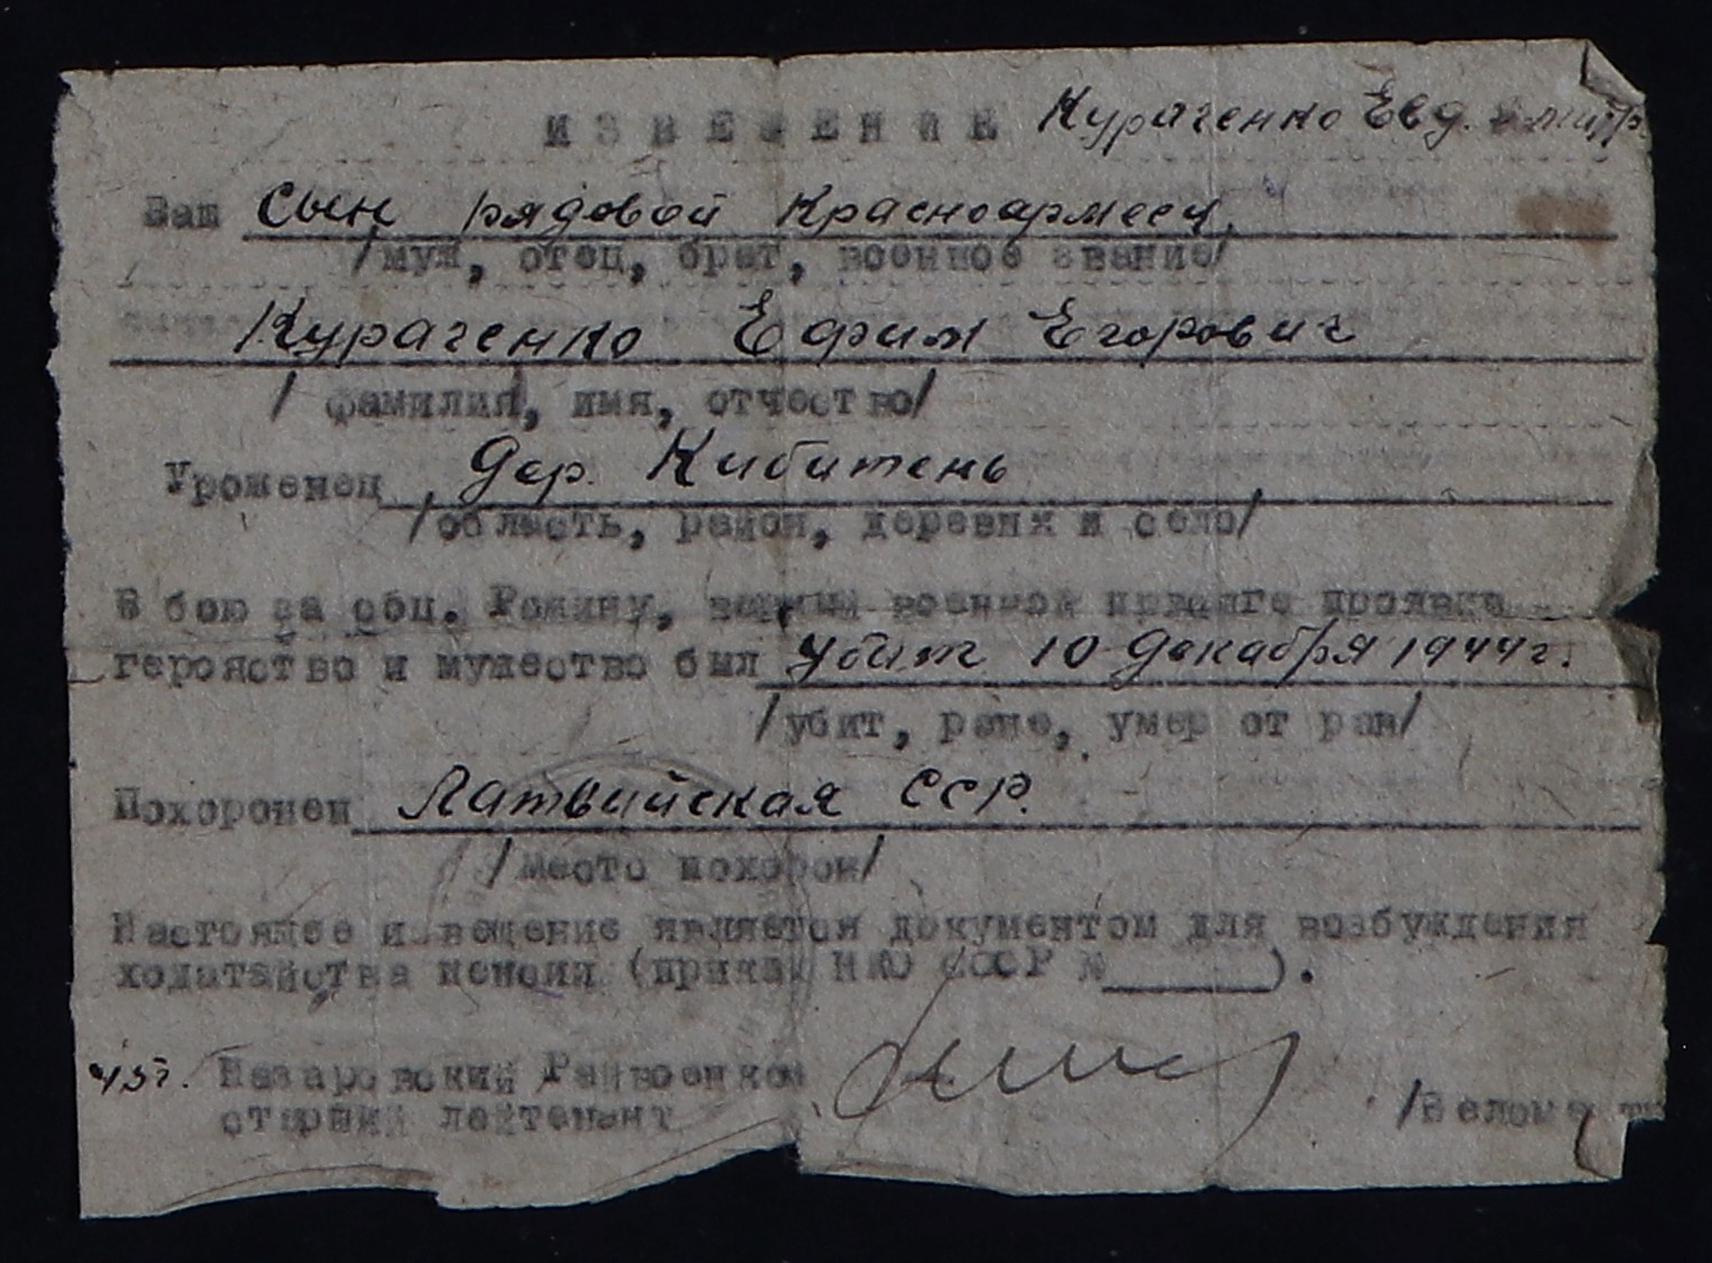 ИЗВЕЩЕНИЕ Курагенко Евд.
Ваш сын рядовой красноармеец.
/муж, отец, брат, военное звание/
Курагенко Ефим Егорович
/ фамилия, имя, отчество/
Уроженец дер. Кибитень
/область, район, деревня и село/
В бою за соц. Родину, верный военной присяге проявив
геройство и мужество был убит 10 декабря 1944г.
/убит, ране, умер от ран/
Похоронен Латвийская ССР.
/место похорон/
Настоящее извещение является документом для возбуждения
ходатайства пенсии (приказ НКО СССР № ).
45г. Назаровский Райвоенком
старший лейтенант